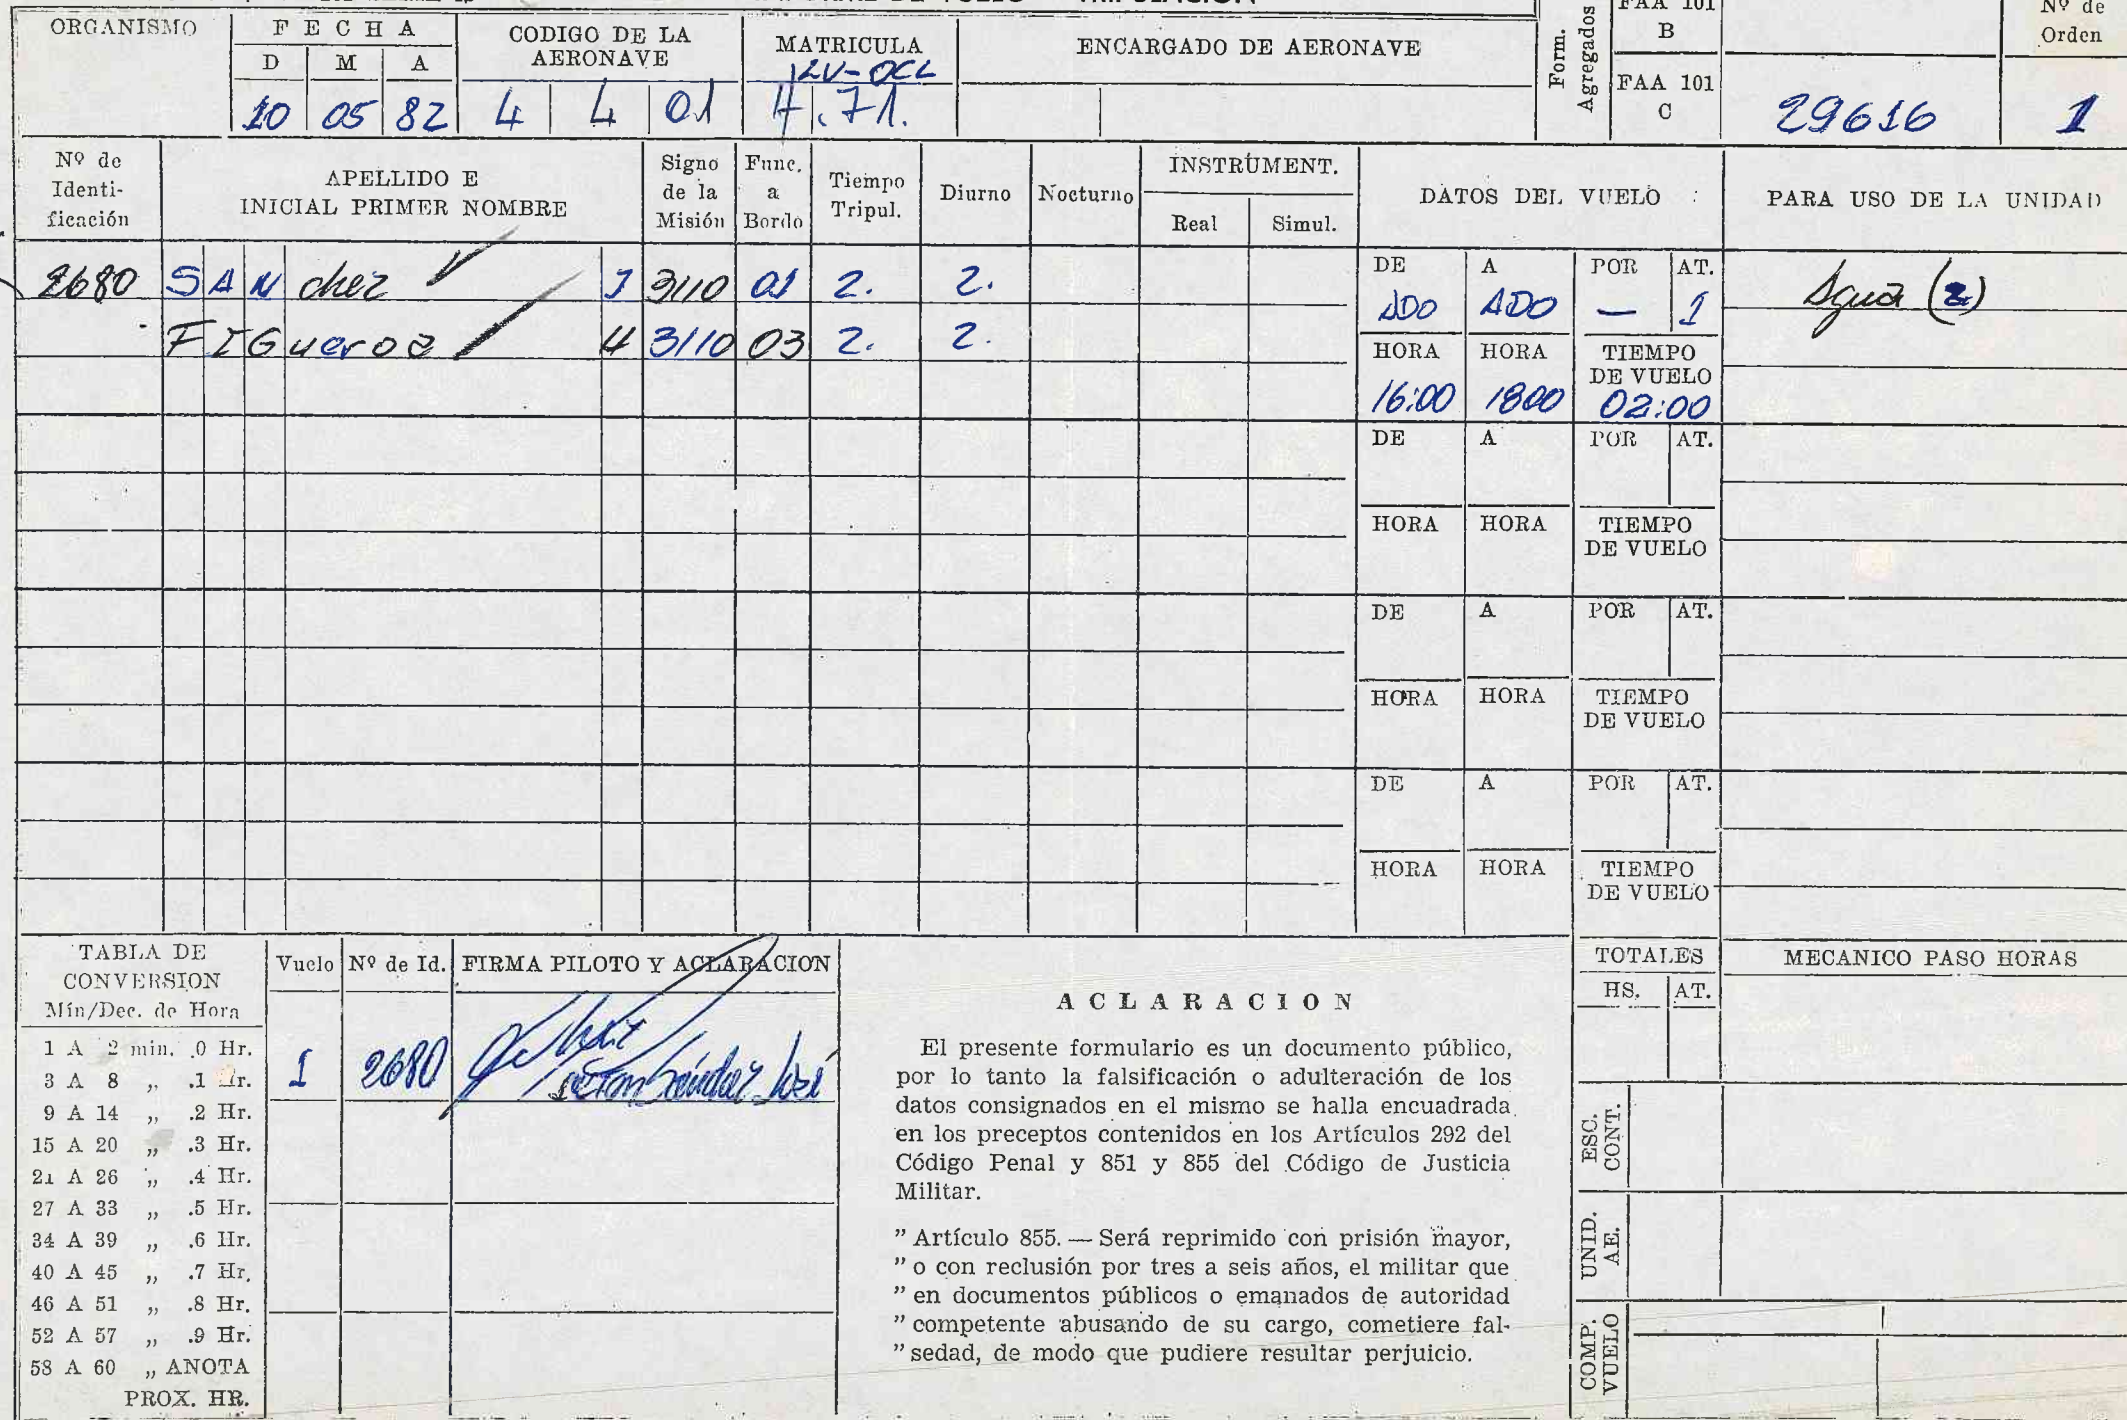 DE VUELO — TRIPULACION
ORGANISMO
F E C H A
D M A
10 05 82
CODIGO DE LA AERONAVE
4 4 01
MATRICULA
LV-OCL
4.71.
ENCARGADO DE AERONAVE
Form. Agregados
FAA 101
B
FAA 101
C
29616
Nº de
Orden
1
Nº de
Identi-
ficación
APELLIDO E
INICIAL PRIMER NOMBRE
Signo
de la
Misión
Func.
a
Bordo
Tiempo
Tripul.
Diurno
Nocturno
INSTRUMENT.
Real Simul.
DATOS DEL VUELO :
PARA USO DE LA UNIDAD
2680 SANchez J 3110 01 2. 2.
FIGueroa H 3110 03 2. 2.
DE A POR AT.
ADO ADO — 1
HORA HORA TIEMPO
DE VUELO
16:00 1800 02:00
Agua (2)
DE A POR AT.
HORA HORA TIEMPO
DE VUELO
DE A POR AT.
HORA HORA TIEMPO
DE VUELO
DE A POR AT.
HORA HORA TIEMPO
DE VUELO
TABLA DE
CONVERSION
Mín/Dec. de Hora
1 A 2 min. .0 Hr.
3 A 8 „ .1 Hr.
9 A 14 „ .2 Hr.
15 A 20 „ .3 Hr.
21 A 26 „ .4 Hr.
27 A 33 „ .5 Hr.
34 A 39 „ .6 Hr.
40 A 45 „ .7 Hr.
46 A 51 „ .8 Hr.
52 A 57 „ .9 Hr.
58 A 60 „ ANOTA
PROX. HR.
Vuelo Nº de Id. FIRMA PILOTO Y ACLARACION
1 2680
Sánchez José
A C L A R A C I O N
El presente formulario es un documento público,
por lo tanto la falsificación o adulteración de los
datos consignados en el mismo se halla encuadrada
en los preceptos contenidos en los Artículos 292 del
Código Penal y 851 y 855 del Código de Justicia
Militar.
” Artículo 855. — Será reprimido con prisión mayor,
” o con reclusión por tres a seis años, el militar que
” en documentos públicos o emanados de autoridad
” competente abusando de su cargo, cometiere fal-
” sedad, de modo que pudiere resultar perjuicio.
TOTALES
HS. AT.
MECANICO PASO HORAS
ESC.
CONT.
UNID.
AE.
COMP.
VUELO